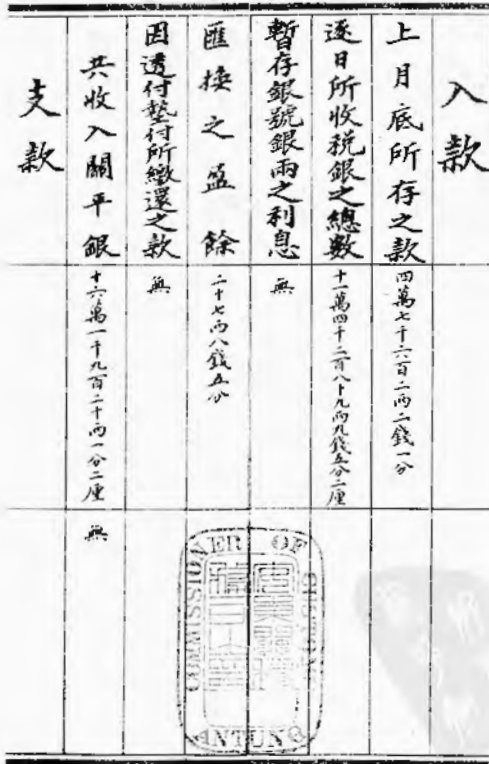 入款
上月底所存之款
四萬七千六百二兩二錢一分
逐日所收税銀之總數
十一萬四千二百八十九兩九錢五分二厘
暫存銀號銀兩之利息
無
匯換之盈餘
二十七兩八錢五分
因透付墊付所繳還之款
無
共收入關平銀
十六萬一千九百二十兩一分二厘
無
支款
COMMISSIONER OF CUSTOMS
ANTUNG